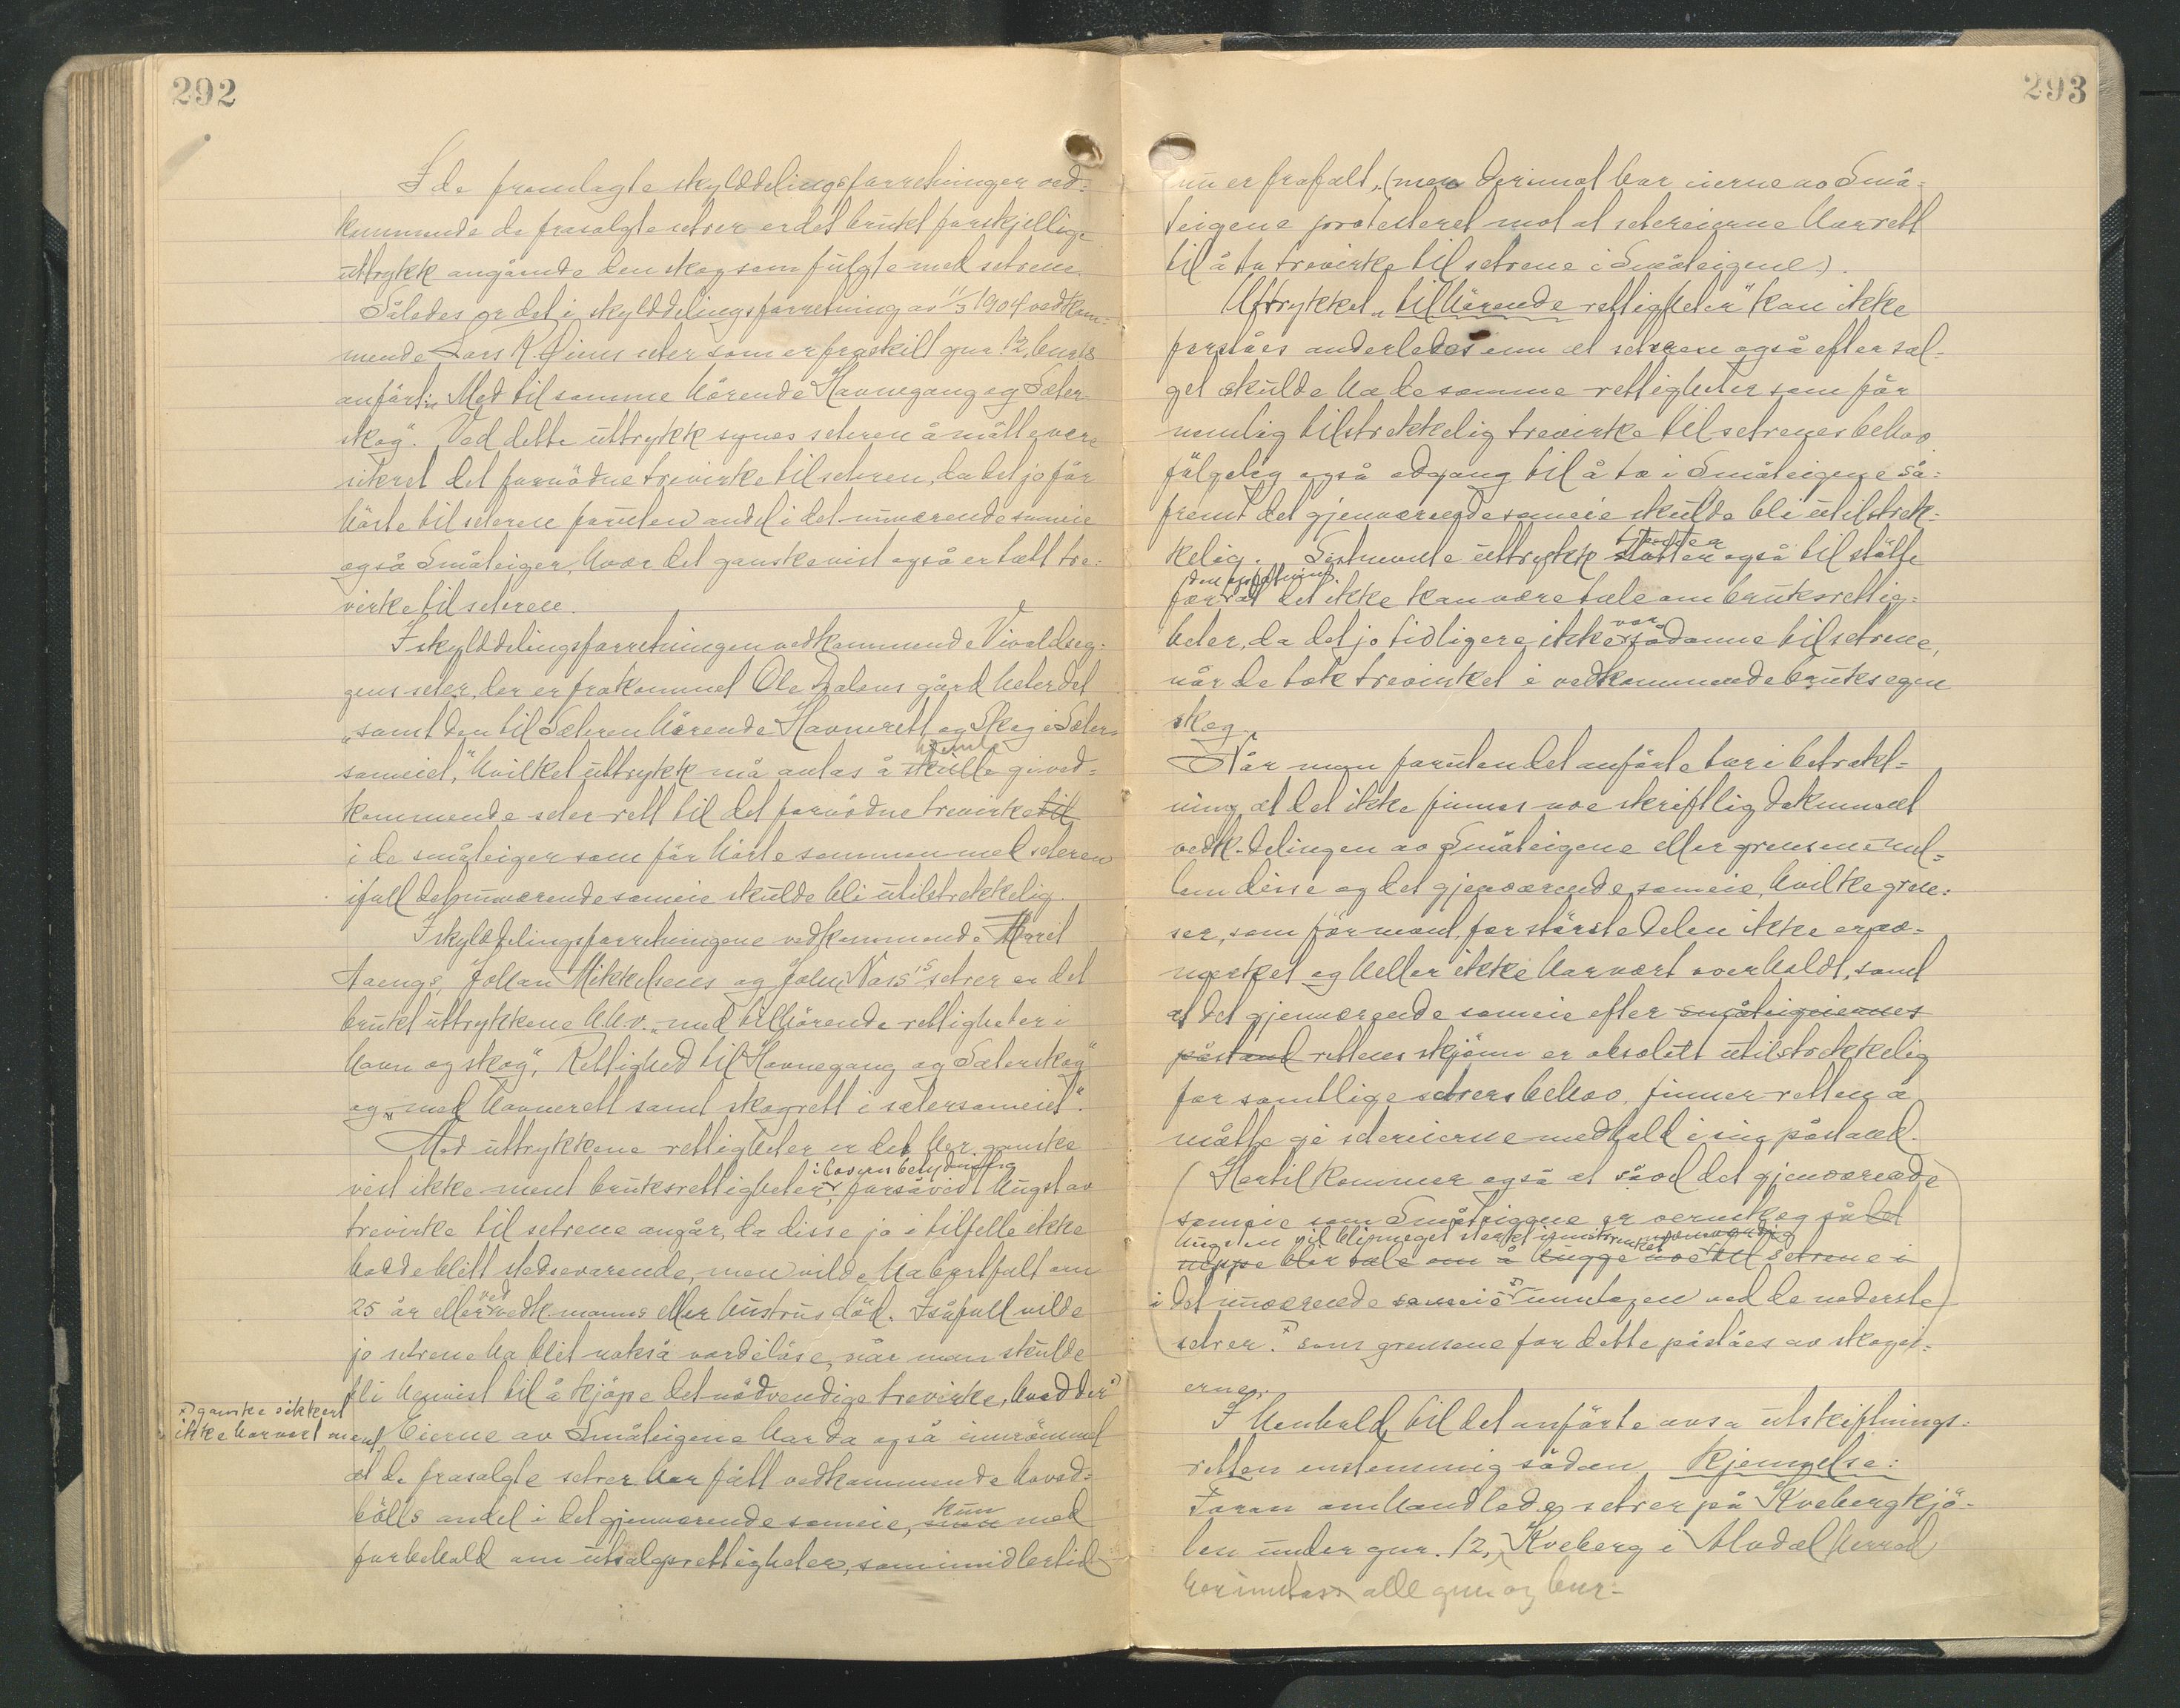 292
I de fremlagte skylddelingsforretninger ved-
kommende de frasolgte setrer er det brukt forskjellige
uttrykk angående den skog som fulgte med setrene.
Således er det i skylddelingsforretning av 11/3 1904 vedkom-
mende Lars seter som er fraskilt gnr. 12, bnr 18
anført: „Med til samme hörende Havnegang og Sæter-
skog". Ved dette uttrykk synes seteren å måtte være
sikret det fornödne trevirke til seteren, da det jo för
hörte til seteren foruten andel i det nuværende sameie
også Småteiger, hvor det ganske vist også er tatt tre-
virke til seteren.
I skylddelingsforretningen vedkommende Vivaldseg-
gens seter, der er frakommet Ole Dalens gård heter det
„samt den til Sæteren hörende Havnerett og Skog i Sæter-
sameiet," hvilket uttrykk må antas å skulle gi ved-
kommende seter rett til det fornödne trevirke til
i de småteiger som för hörte sammen med seteren
ifall det nuværende sameie skulde bli utilstrekkelig.
I skylddelingsforretningene vedkommende Marit
Aaengs, Johan Mikkelsens og John Næss's setrer er det
brukt uttrykkene hhv. „med tilhörende rettigheter i
havn og skog", „Rettighed til Havnegang og Sæterskog"
og „med havnerett samt skogrett i sætersameiet".
Med uttrykkene rettigheter er det her ganske
i lovens betydning
vist ikke ment bruksrettigheter, forsåvidt hugst av
trevirke til setrene angår, da disse jo i tilfelle ikke
hadde blitt stedsevarende, men vilde ha bortfalt om
25 år eller ved vedk. manns eller hustrus död. Isåfall vilde
jo setrene ha blit nokså verdilöse, når man skulde
bli henvist til å kjöpe det nödvendige trevirke, hvad der
ganske sikkert
ikke har vært ment
Eierne av Småteigene har da også innrömmet
at de frasolgte setrer har fått vedkommende hoved-
bölls andel i det gjenværende sameie, kun med
forbehold om utsalgsrettigheter, som imidlertid
293
nu er frafalt, (men derimot har eierne av Små-
teigene protestert mot at setereierne har rett
til å ta trevirke til setrene i Småteigene).
Uttrykket „tilhörende rettigheter" kan ikke
forståes anderledes enn at setrene også efter sal-
get skulde ha de samme rettigheter som för
nemlig tilstrekkelig trevirke til setrenes behov
fölgelig også adgang til å ta i Småteigene så-
fremt det gjenværende sameie skulde bli utilstrek-
kelig. Sistnevnte uttrykk tjener også til stötte
den opfatning
for at det ikke kan være tale om bruksrettig-
heter, da det jo tidligere ikke var sådanne til setrene,
når de tok trevirket i vedkommende bruks egen
skog.
Når man foruten det anförte tar i betrakt-
ning at det ikke finnes noe skriftlig dokument
vedk. delingen av Småteigene eller grensene mel-
lem disse og det gjenværende sameie, hvilke gren-
ser, som för nevnt, for störste delen ikke er av-
merket og heller ikke har vært overholdt, samt
at det gjenværende sameie efter småteigeiernes
påstand rettens skjönn er absolutt utilstrekkelig
for samtlige setrers behov, finner retten å
måtte gi setereierne medhold i sin påstand.
(Hertil kommer også at såvel det gjenværende
sameie som Småteigene er verneskog så at
hugsten vil bli meget sterkt innskrenket
neppe blir tale om å hugge noe til setrene i
i det nuværende sameie unntagen ved de nederste
setrer. som grensene for dette påståes av skogei-
erne.
I henhold til det anförte avsa utskiftnings-
retten enstemmig sådan Kjennelse:
Foran omhandlede setrer på Kvebergkjö-
len under gnr. 12, Kveberg i Alvdal herred
her inntas alle gnr og bnr.